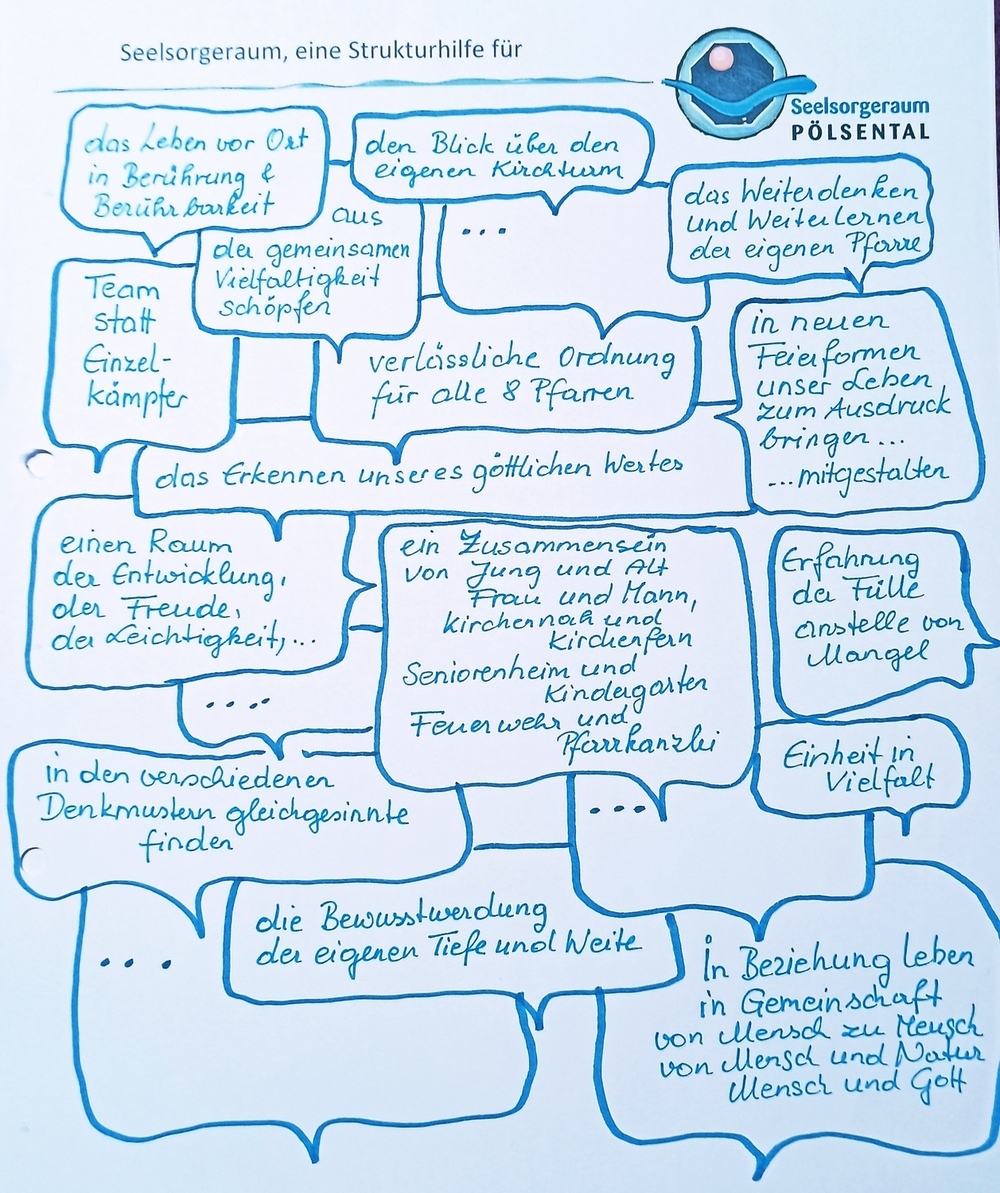 Seelsorgeraum, eine Strukturhilfe für
Seelsorgeraum
PÖLSENTAL
das Leben vor Ort
in Berührung &
Berührbarkeit
den Blick über den
eigenen Kirchturm
das Weiterdenken
und Weiterlernen
der eigenen Pfarre
aus
der gemeinsamen
Vielfältigkeit
schöpfen
...
Team
statt
Einzel-
kämpfer
verlässliche Ordnung
für alle 8 Pfarren
in neuen
Feierformen
unser Leben
zum Ausdruck
bringen...
...mitgestalten
das Erkennen unseres göttlichen Wertes
einen Raum
der Entwicklung,
der Freude,
der Leichtigkeit,...
ein Zusammensein
von Jung und Alt
Frau und Mann,
kirchennah und
Kirchenfern
Seniorenheim und
Kindergarten
Feuerwehr und
Pfarrkanzlei
Erfahrung
der Fülle
anstelle von
Mangel
....
Einheit in
Vielfalt
in den verschiedenen
Denkmustern gleichgesinnte
finden
...
...
die Bewusstwerdung
der eigenen Tiefe und Weite
In Beziehung Leben
in Gemeinschaft
von Mensch zu Mensch
von Mensch und Natur
Mensch und Gott